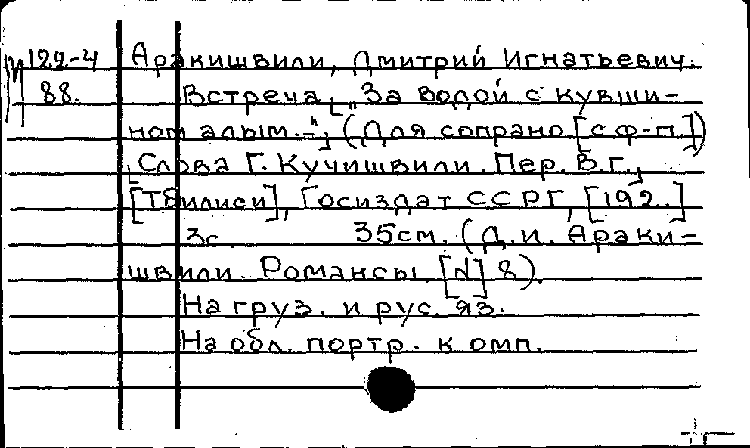 М 122-4 Аракишвили, Дмитрий Игнатьевич.
88. Встреча [„За водой с кувши-
ном алым.-“; (Для сопрано [с ф-п.])
[Слова Г. Кучишвили. Пер. В.Г.,
[Тбилиси], Госиздат ССРГ, [192.]
3с. 35см. (Д.И. Араки-
швили. Романсы. [№] 8).
На груз. и рус. яз.
На обл. портр. комп.